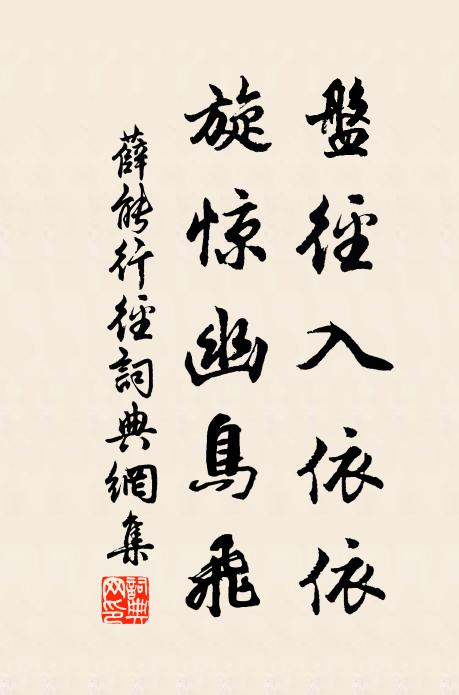 盤徑入依依
旋惊幽鳥飛
薛能行徑詞典網集
詞典網印